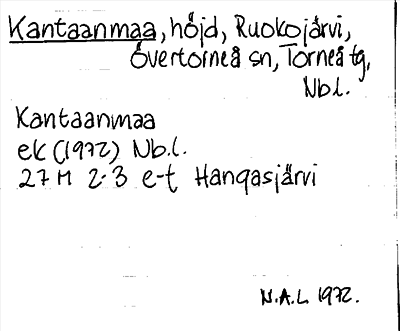 Kantaanmaa, höjd, Ruokojärvi,
Övertorneå sn, Torneå tg,
Nbl.
Kantaanmaa
ek (1972) Nb.l.
27 M 2-3 e-t Hangasjärvi
N.A.L 1972.